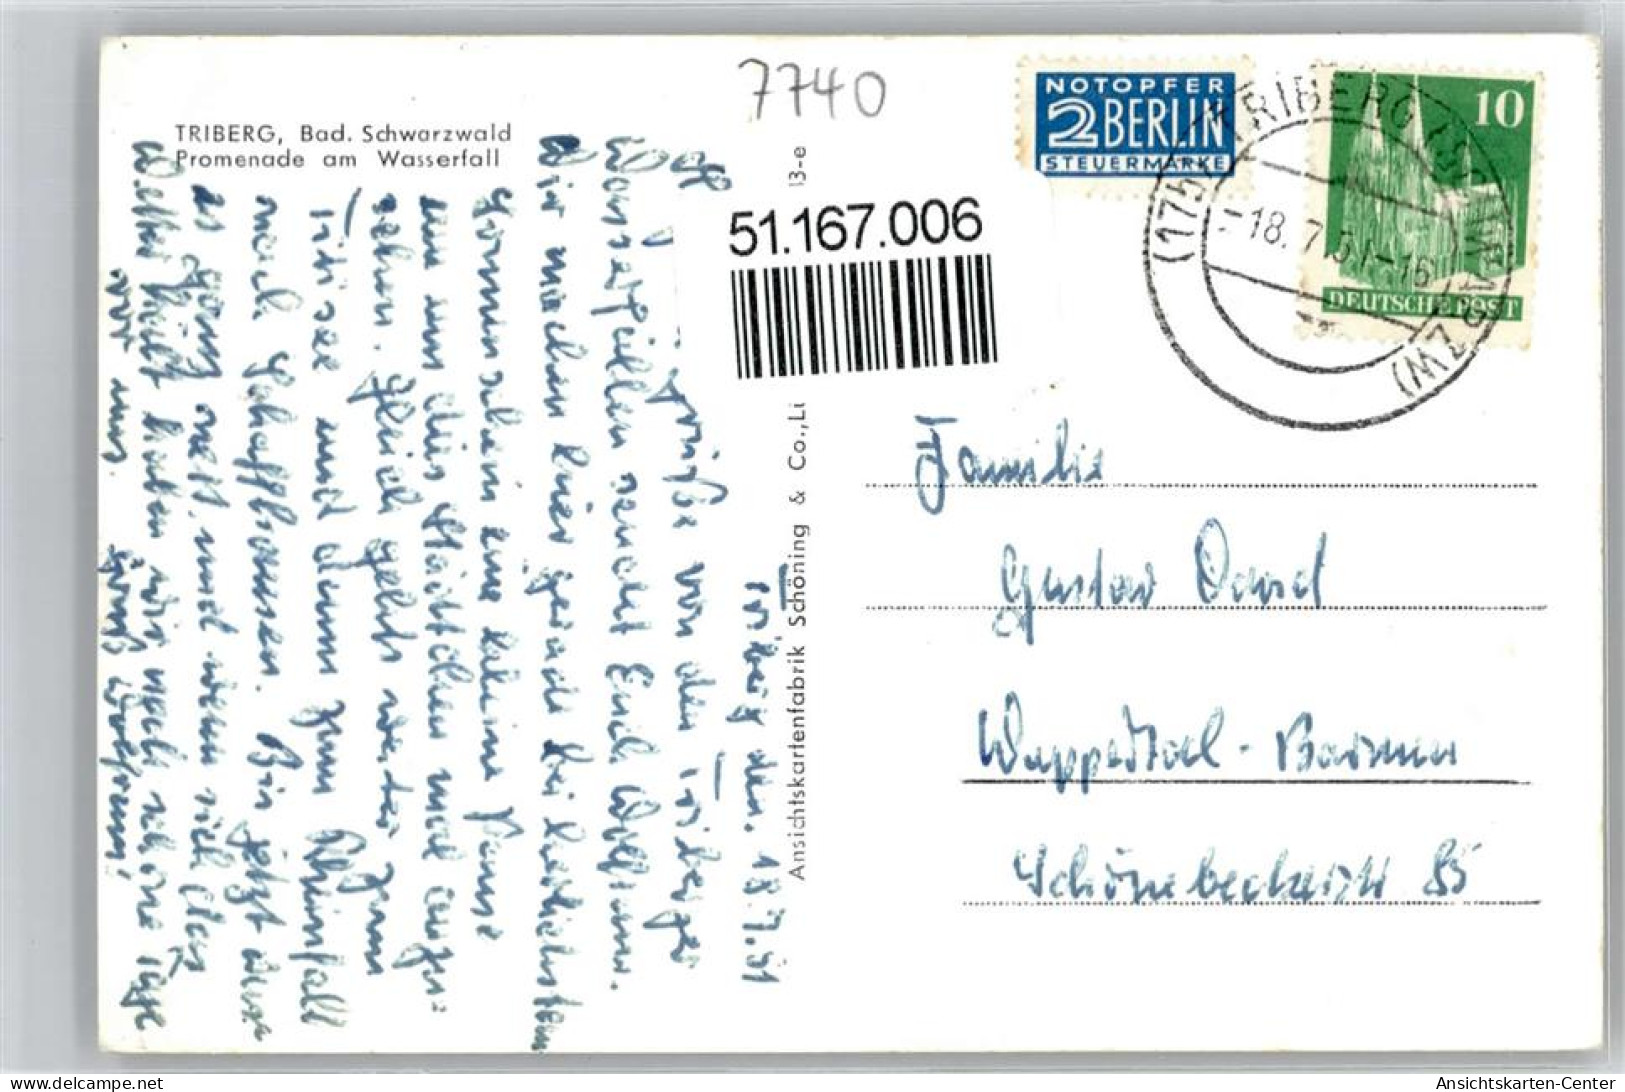 7740
TRIBERG, Bad. Schwarzwald
Promenade am Wasserfall
NOTOPFER
2 BERLIN
STEUERMARKE
10
DEUTSCHE POST
TRIBERG (SCHWARZW)
(17b)
-18.7.51-16
51.167.006
13-e
Ansichtskartenfabrik Schöning & Co., Lü
Triberg den. 18.7.51
grüße von den Triberger
Wasserfällen sendet Euch Wolfram.
Wir machen hier gerade bei herrlichstem
Sonnenschein eine kleine Pause
um uns dies Städtchen mal anzu=
sehen. Gleich gehts weiter zum
Titisee und dann zum Rheinfall
nach Schaffhausen. Bin jetzt
es ganz nett, und wenn sich das
Wetter hält haben wir noch schöne Tage
vor uns.
Gruß Wolfram!
Familie
Gustav
Wuppertal-Barmen
Schönebeckerstr 85
Ansichtskarten-Center